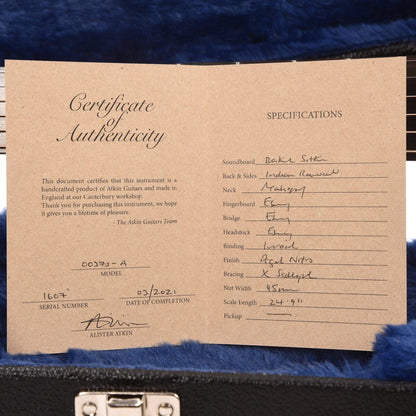 Certificate
of
Authenticity
This document certifies that this instrument is a
handcrafted product of Atkin Guitars and made in
England at our Canterbury workshop.
Thank you for purchasing this instrument, we hope
it gives you a lifetime of pleasure.
- The Atkin Guitars Team
MODEL
1607
03/2021
SERIAL NUMBER
DATE OF COMPLETION
Atkin
ALISTER ATKIN
SPECIFICATIONS
Soundboard Baked Sitka
Back & Sides Indian Rosewood
Neck Mahogany
Fingerboard Ebony
Bridge Ebony
Headstock Ebony
Binding
Finish Aged Nitro
Bracing X Scalloped
Nut Width 45mm
Scale Length 24.9"
Pickup —